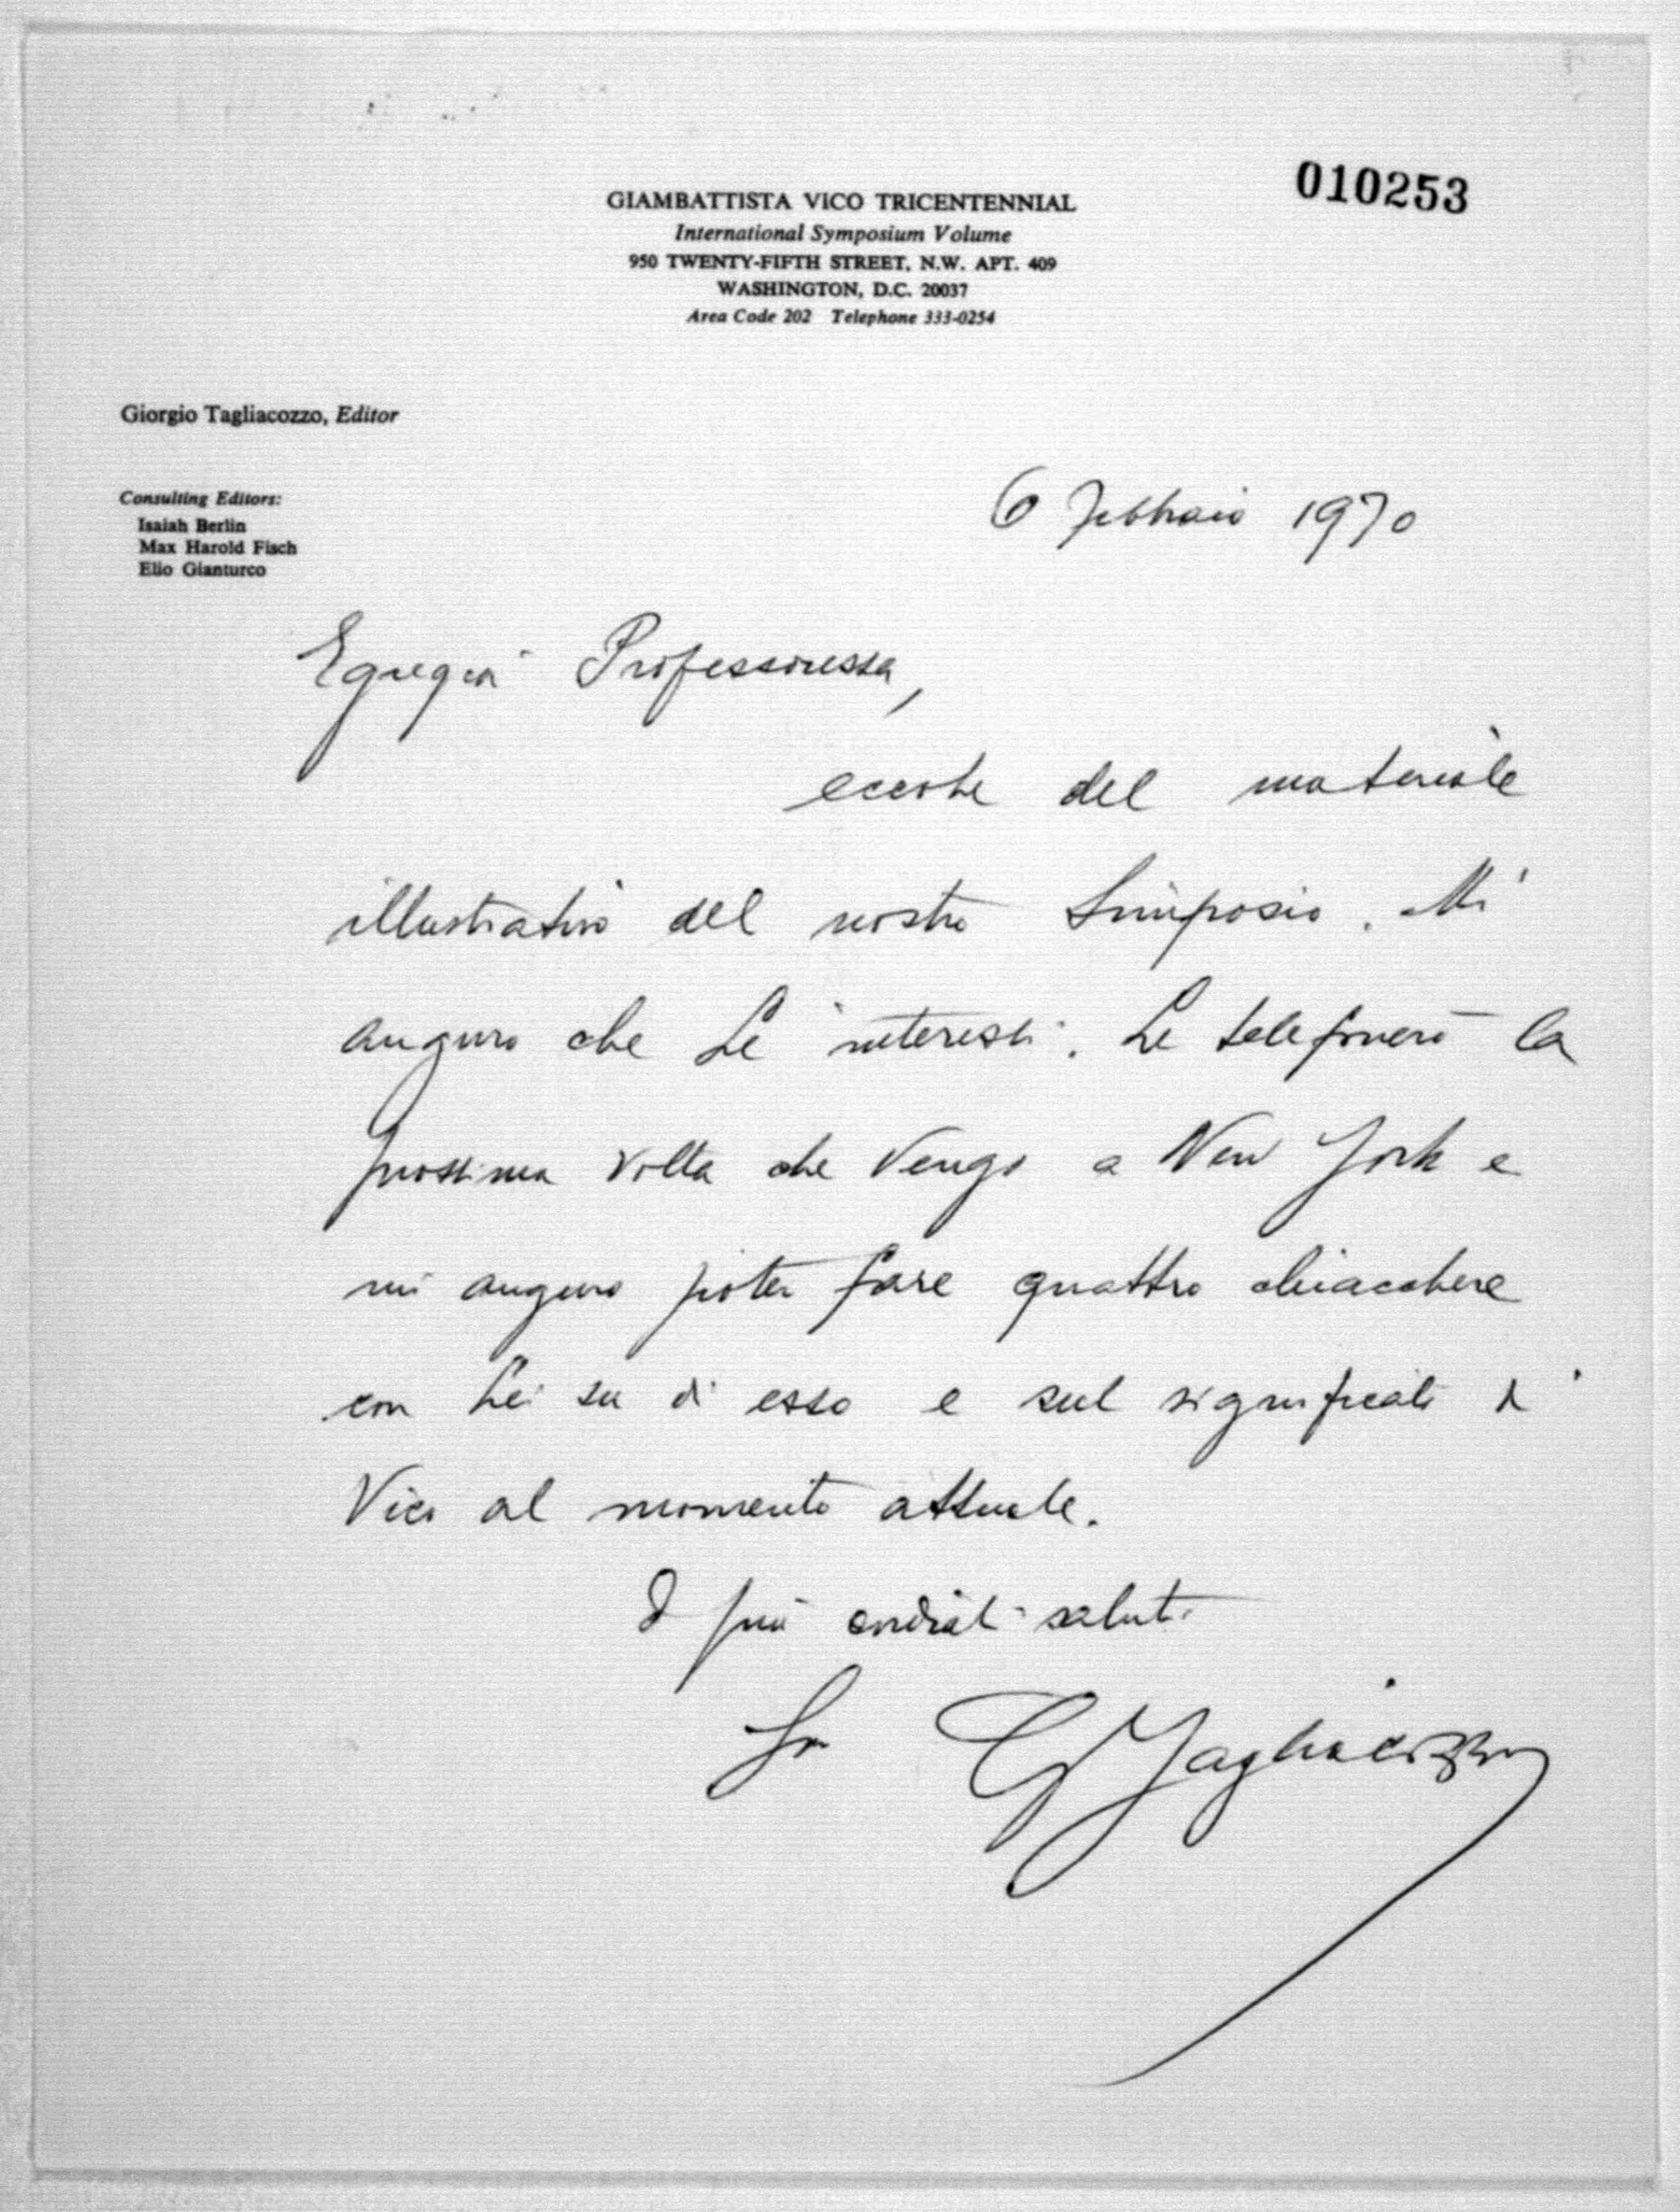 010253
GIAMBATTISTA VICO TRICENTENNIAL
International Symposium Volume
950 TWENTY-FIFTH STREET, N.W. APT. 409
WASHINGTON, D.C. 20037
Area Code 202 Telephone 333-0254
Giorgio Tagliacozzo, Editor
Consulting Editors:
Isaiah Berlin
Max Harold Fisch
Elio Gianturco
6 Febbraio 1970
Egregia Professoressa,
eccole del materiale
illustrativo del nostro Simposio. Mi
auguro che Le interessi. Le telefonerò la
prossima volta che vengo a New York e
mi auguro poter fare quattro chiacchere
con Lei su di esso e sul significato di
Vico al momento attuale.
I più cordiali saluti
Suo G Tagliacozzo